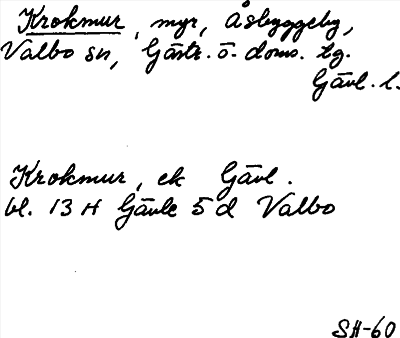 Krokmur, myr, Åsbyggeby,
Valbo sn, Gästr. ö. doms. tg.
Gävl. l.
Krokmur, ek Gävl.
bl. 13 H Gävle 5 d Valbo
SH-60